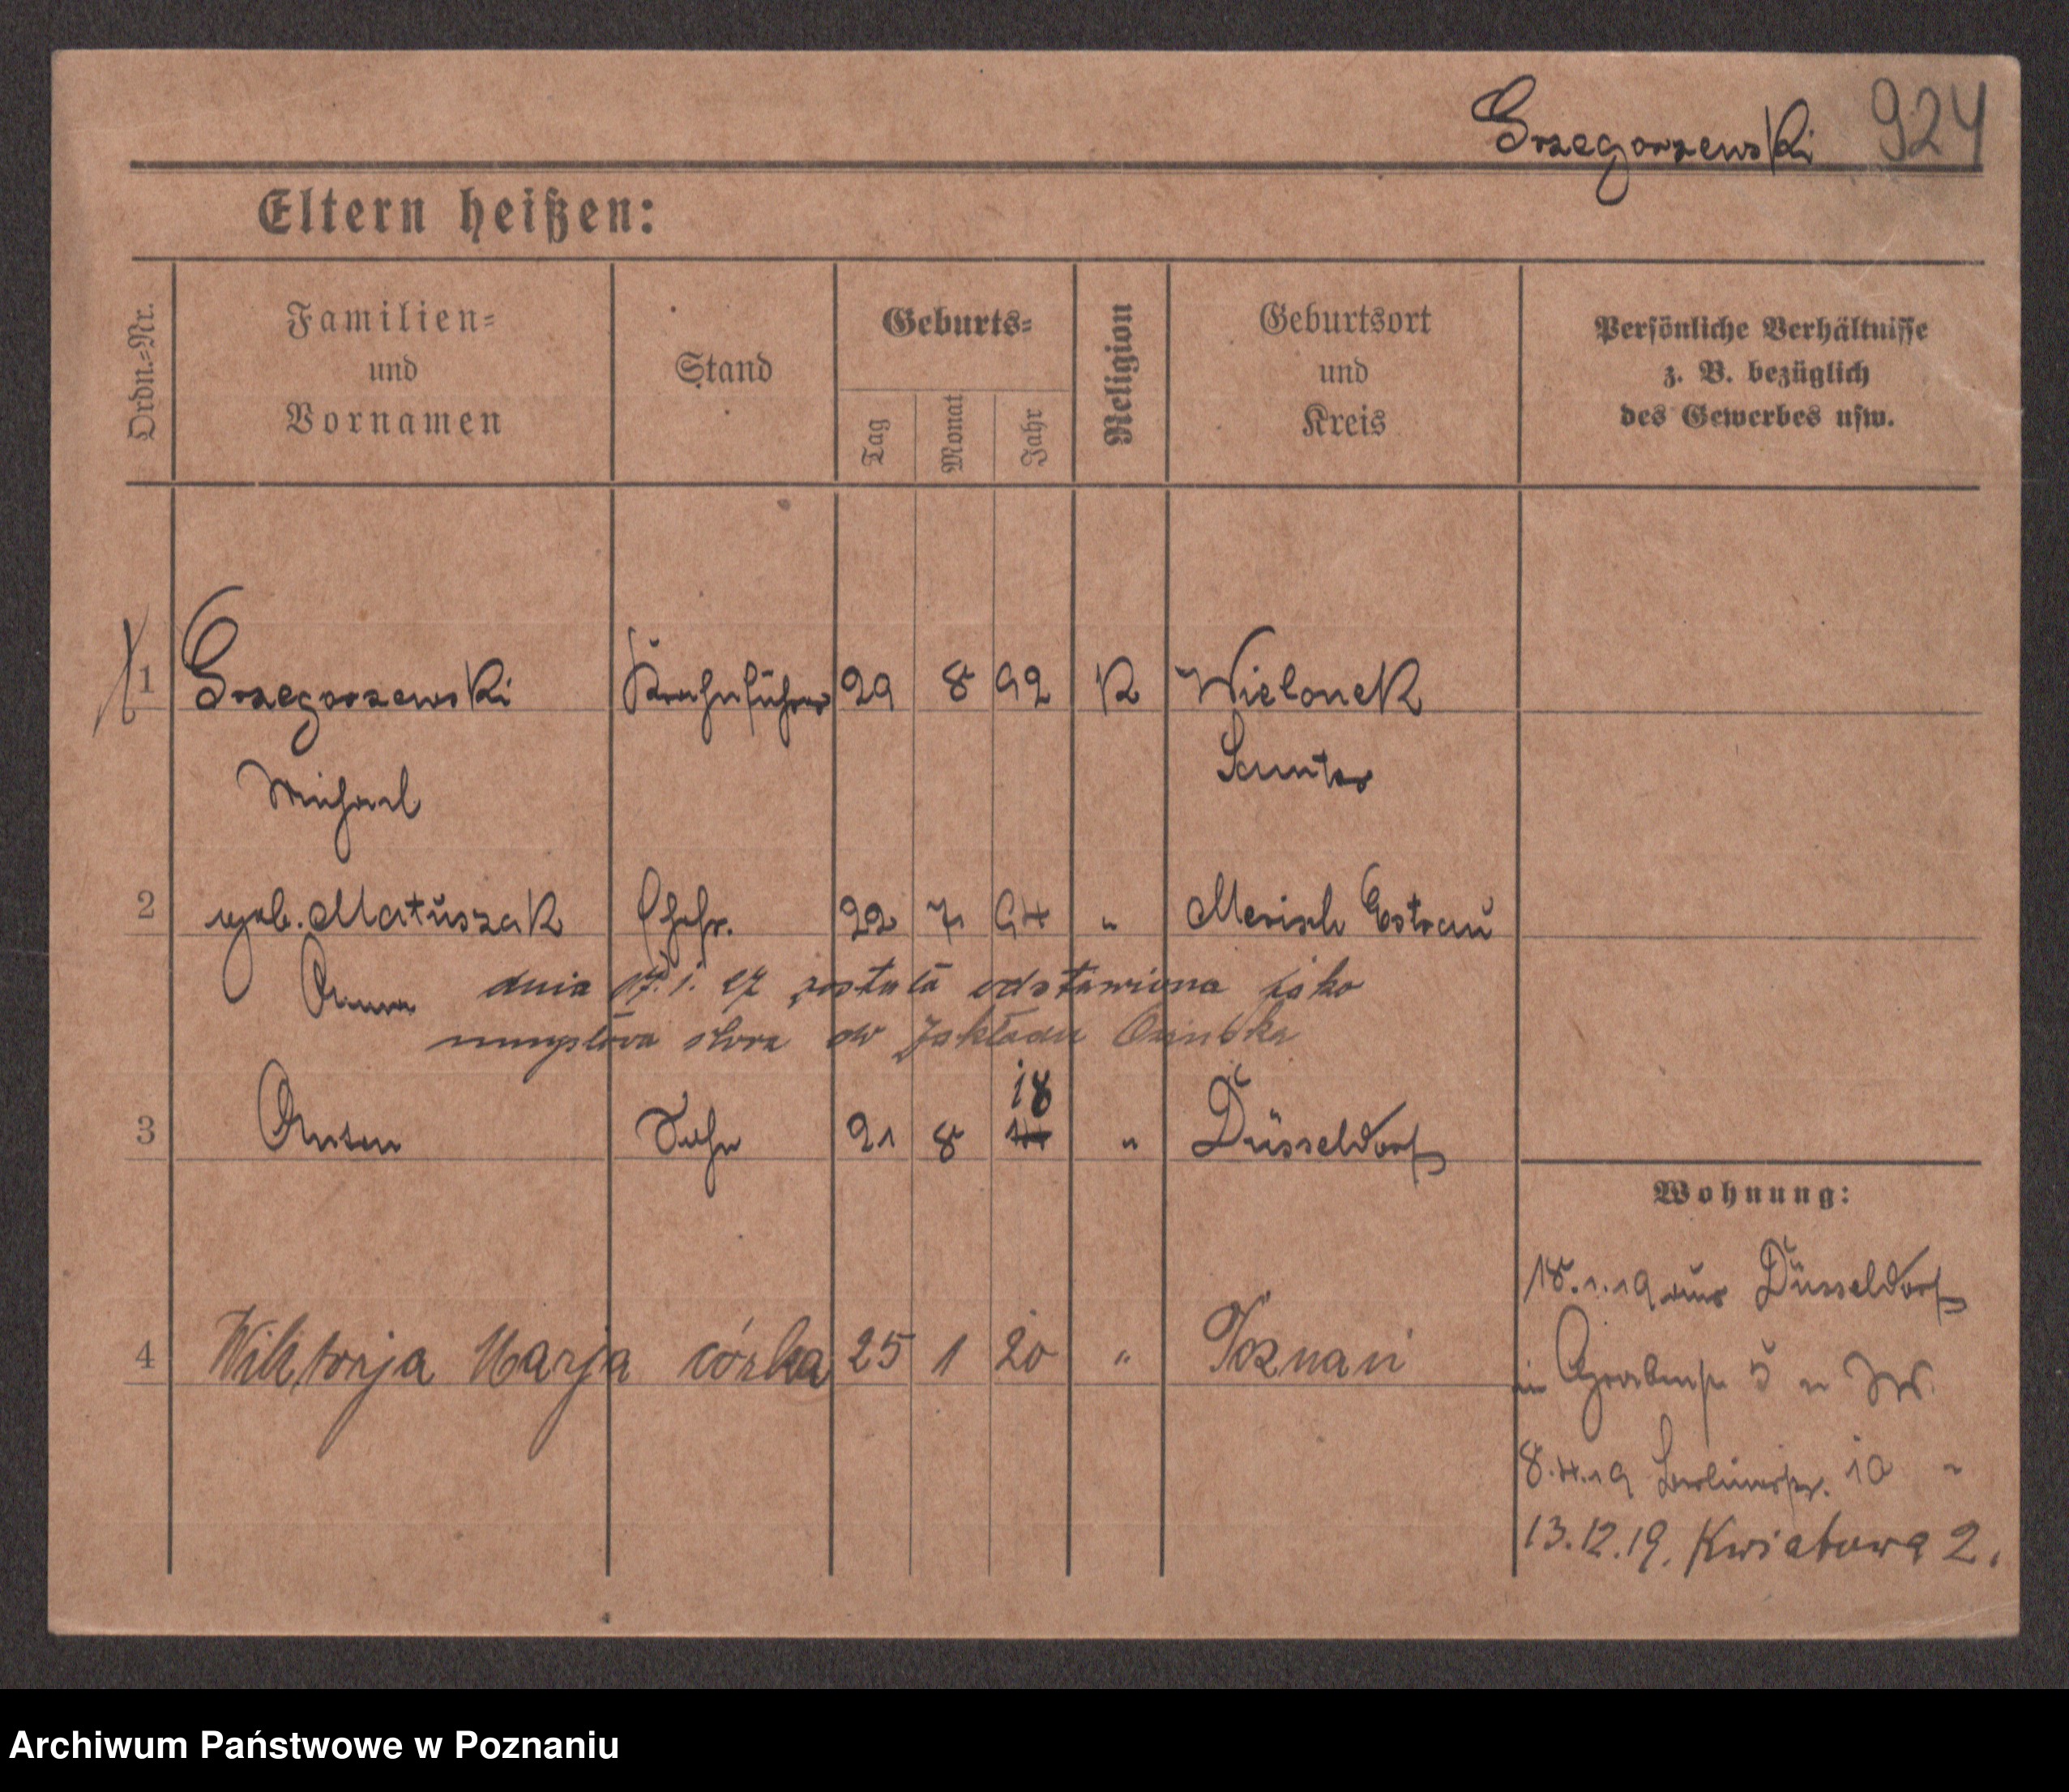 Grzegorzewski 924
Eltern heißen:
Ordn.-Nr.
Familien-
und
Vornamen
Stand
Geburts-
Tag
Monat
Jahr
Religion
Geburtsort
und
Kreis
Persönliche Verhältnisse
z. B. bezüglich
des Gewerbes usw.
1 Grzegorzewski Krahnführer 29 8 92 K Wielonek
Michael Samter
2 geb. Matuszak Ehefr. 22 7 94 " Merisch Ostrau
Anna dnia 17.1.27 została odstawiona jako
umysłowo chora do Zakładu Dziekanka
18
3 Anton Sohn 21 8 " Düsseldorf
Wohnung:
18.1.19 aus Düsseldorf
4 Wiktorja Marja córka 25 1 20 " Poznań
in Grabenstr 5
8.4.19 Berlinerstr. 10
13.12.19. Kwiatowa 2.
Archiwum Państwowe w Poznaniu